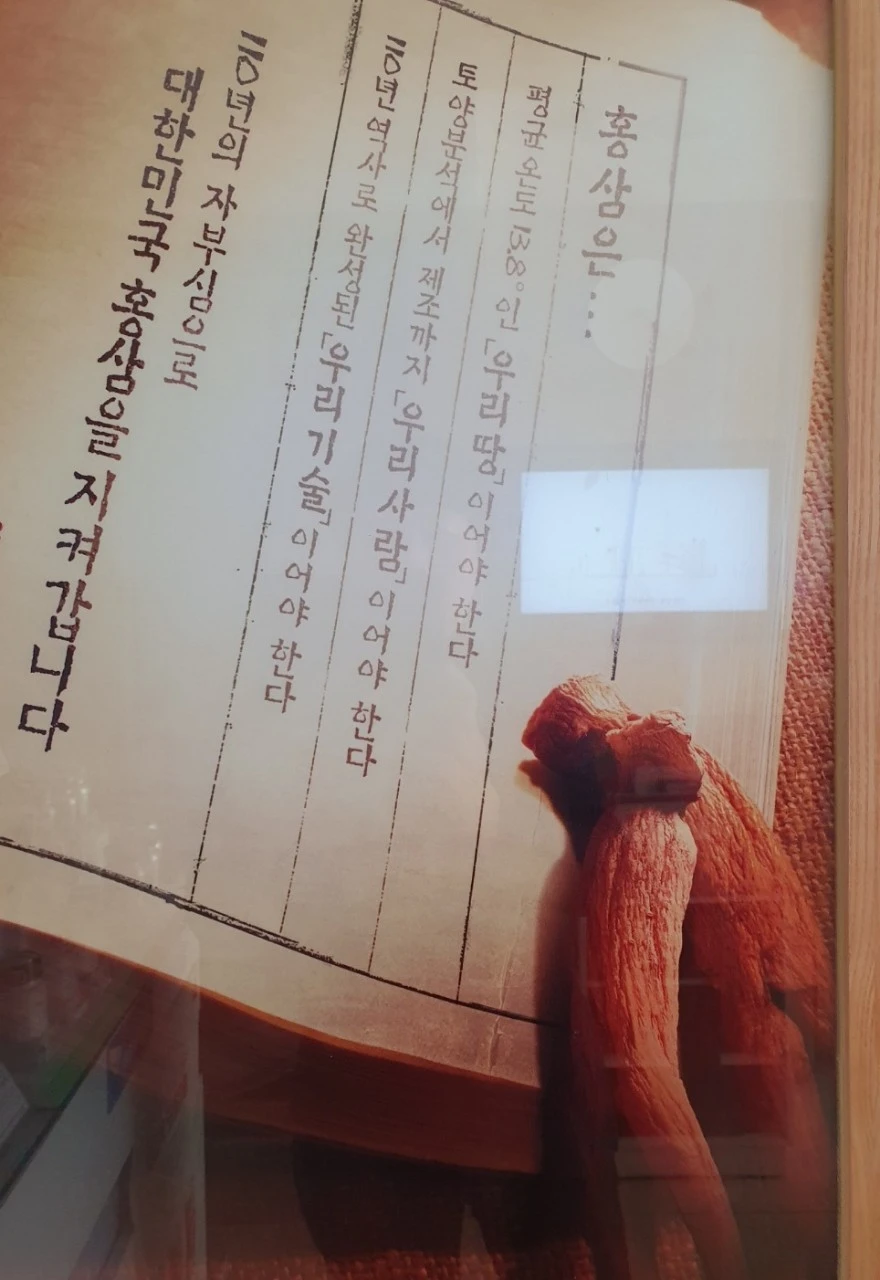 홍삼은...
평균온도 13.8°인「우리땅」이어야 한다
토양분석에서 제조까지「우리사람」이어야 한다
110년역사로 완성된「우리기술」이어야 한다
110년의 자부심으로
대한민국 홍삼을 지켜갑니다